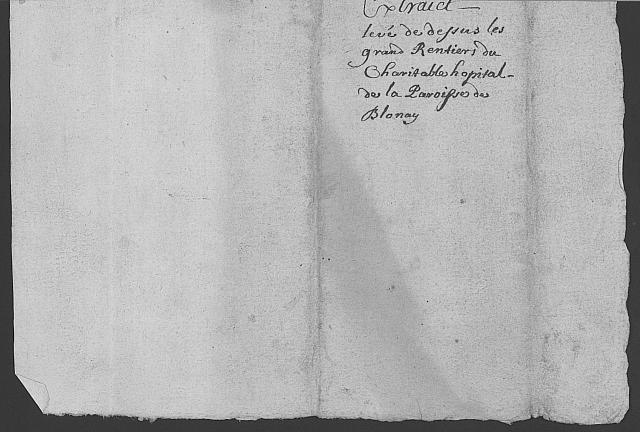 Extraict
levé de dessus les
grand Rentiers du
Charitable hopital
de la Paroisse de
Blonay